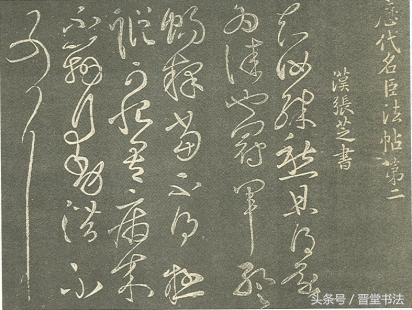 歷代名臣法帖第二
漢張芝書
知汝殊愁且得還
為佳也冠軍暫
暢釋當不得極
蹤可恨吾病來
不辦行動潛不
可耳
头条号／晋堂书法